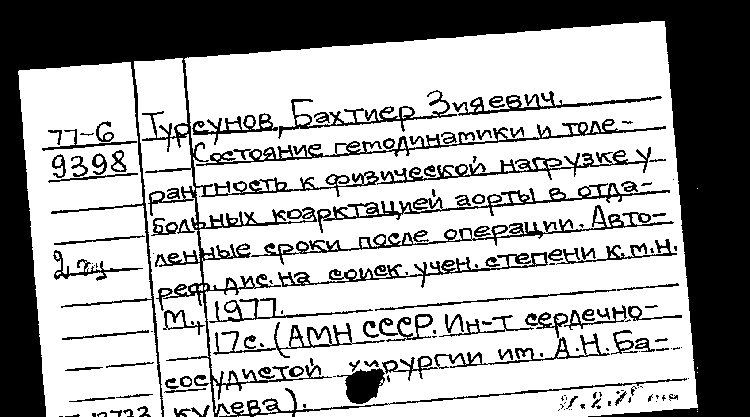 77-6
9398
2 эк
Турсунов, Бахтиер Зияевич.
Состояние гемодинамики и толе-
рантность к физической нагрузке у
больных коарктацией аорты в отда-
ленные сроки после операции. Авто-
реф. дис. на соиск. учен. степени к.м.н.
М., 1977.
17с. (АМН СССР. Ин-т сердечно-
сосудистой хирургии им. А.Н.Ба-
кулева).